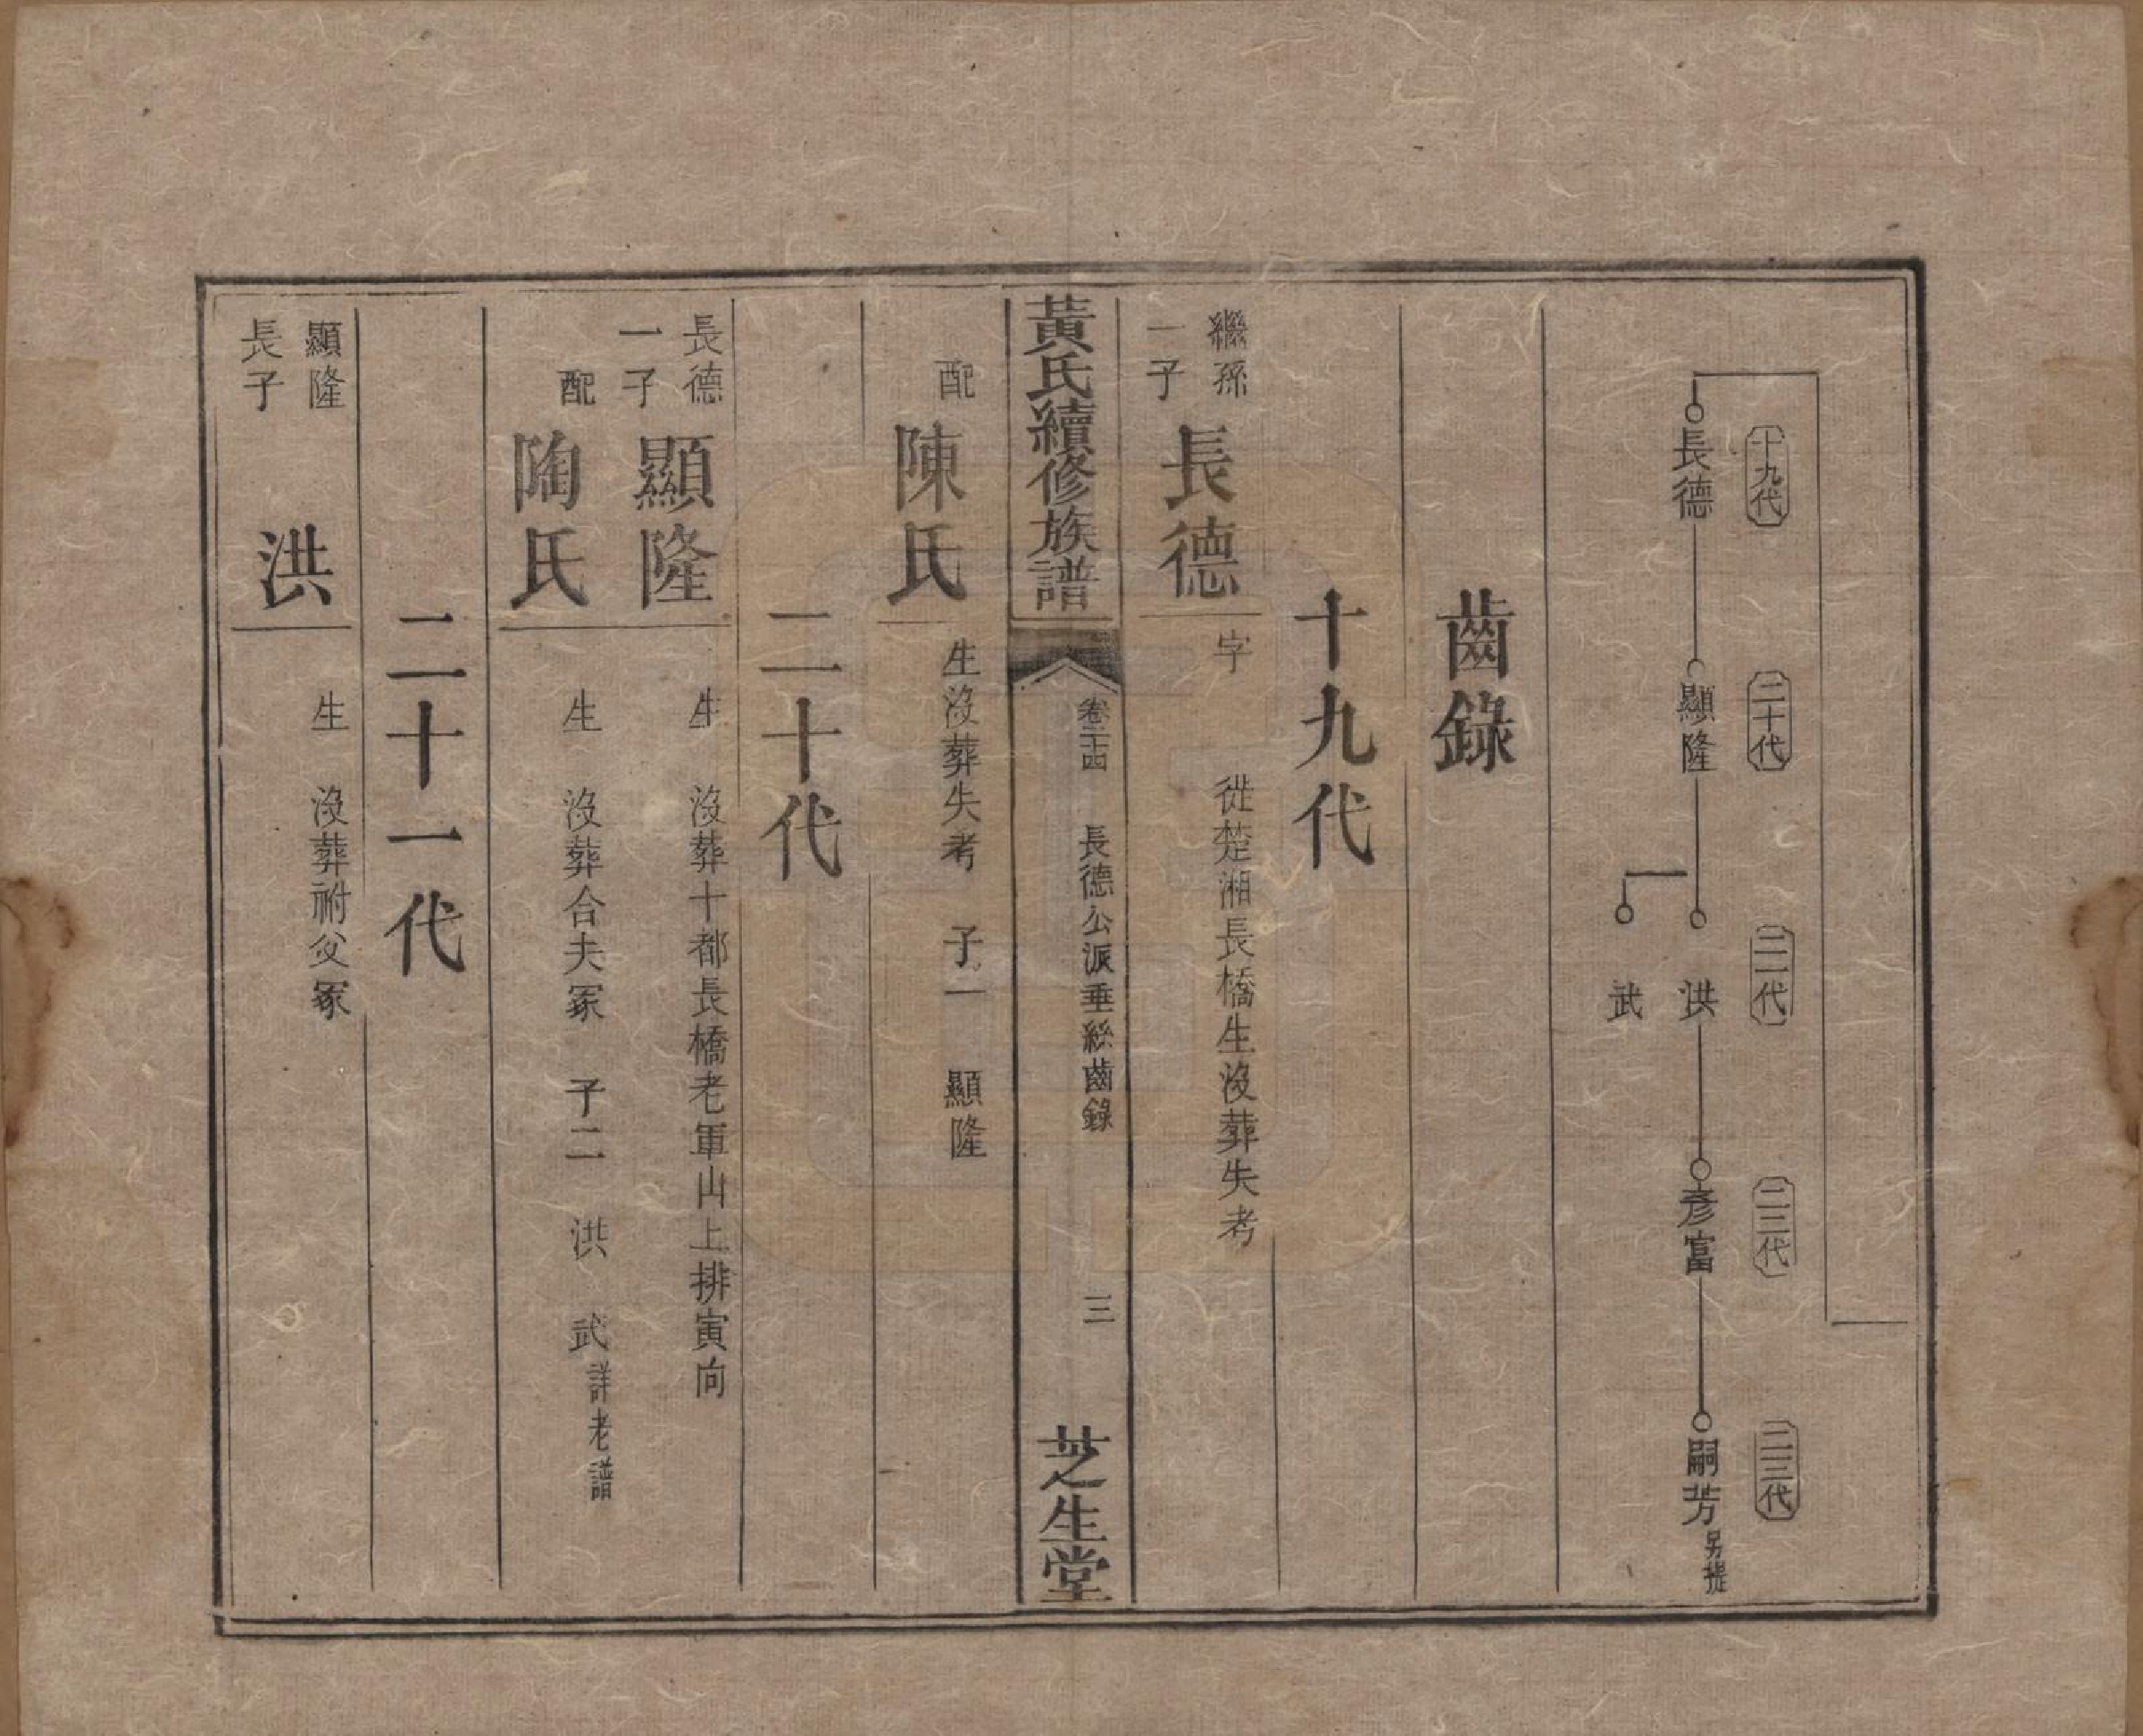 十九代
二十代
二一代
二二代
二三代
長德
顯隆
洪
彥富
嗣芳另提
武
齒錄
十九代
繼孫
一子
長德
字　從楚湘長橋生沒葬失考
黃氏續修族譜
卷二十四　長德公派垂絲齒錄　三
芝生堂
配
陳氏
生沒葬失考　子一　顯隆
二十代
長德
一子
顯隆
生　沒葬十都長橋老軍山上排寅向
配
陶氏
生　沒葬合夫冢　子二　洪　武詳老譜
二十一代
顯隆
長子
洪
生　沒葬祔父冢